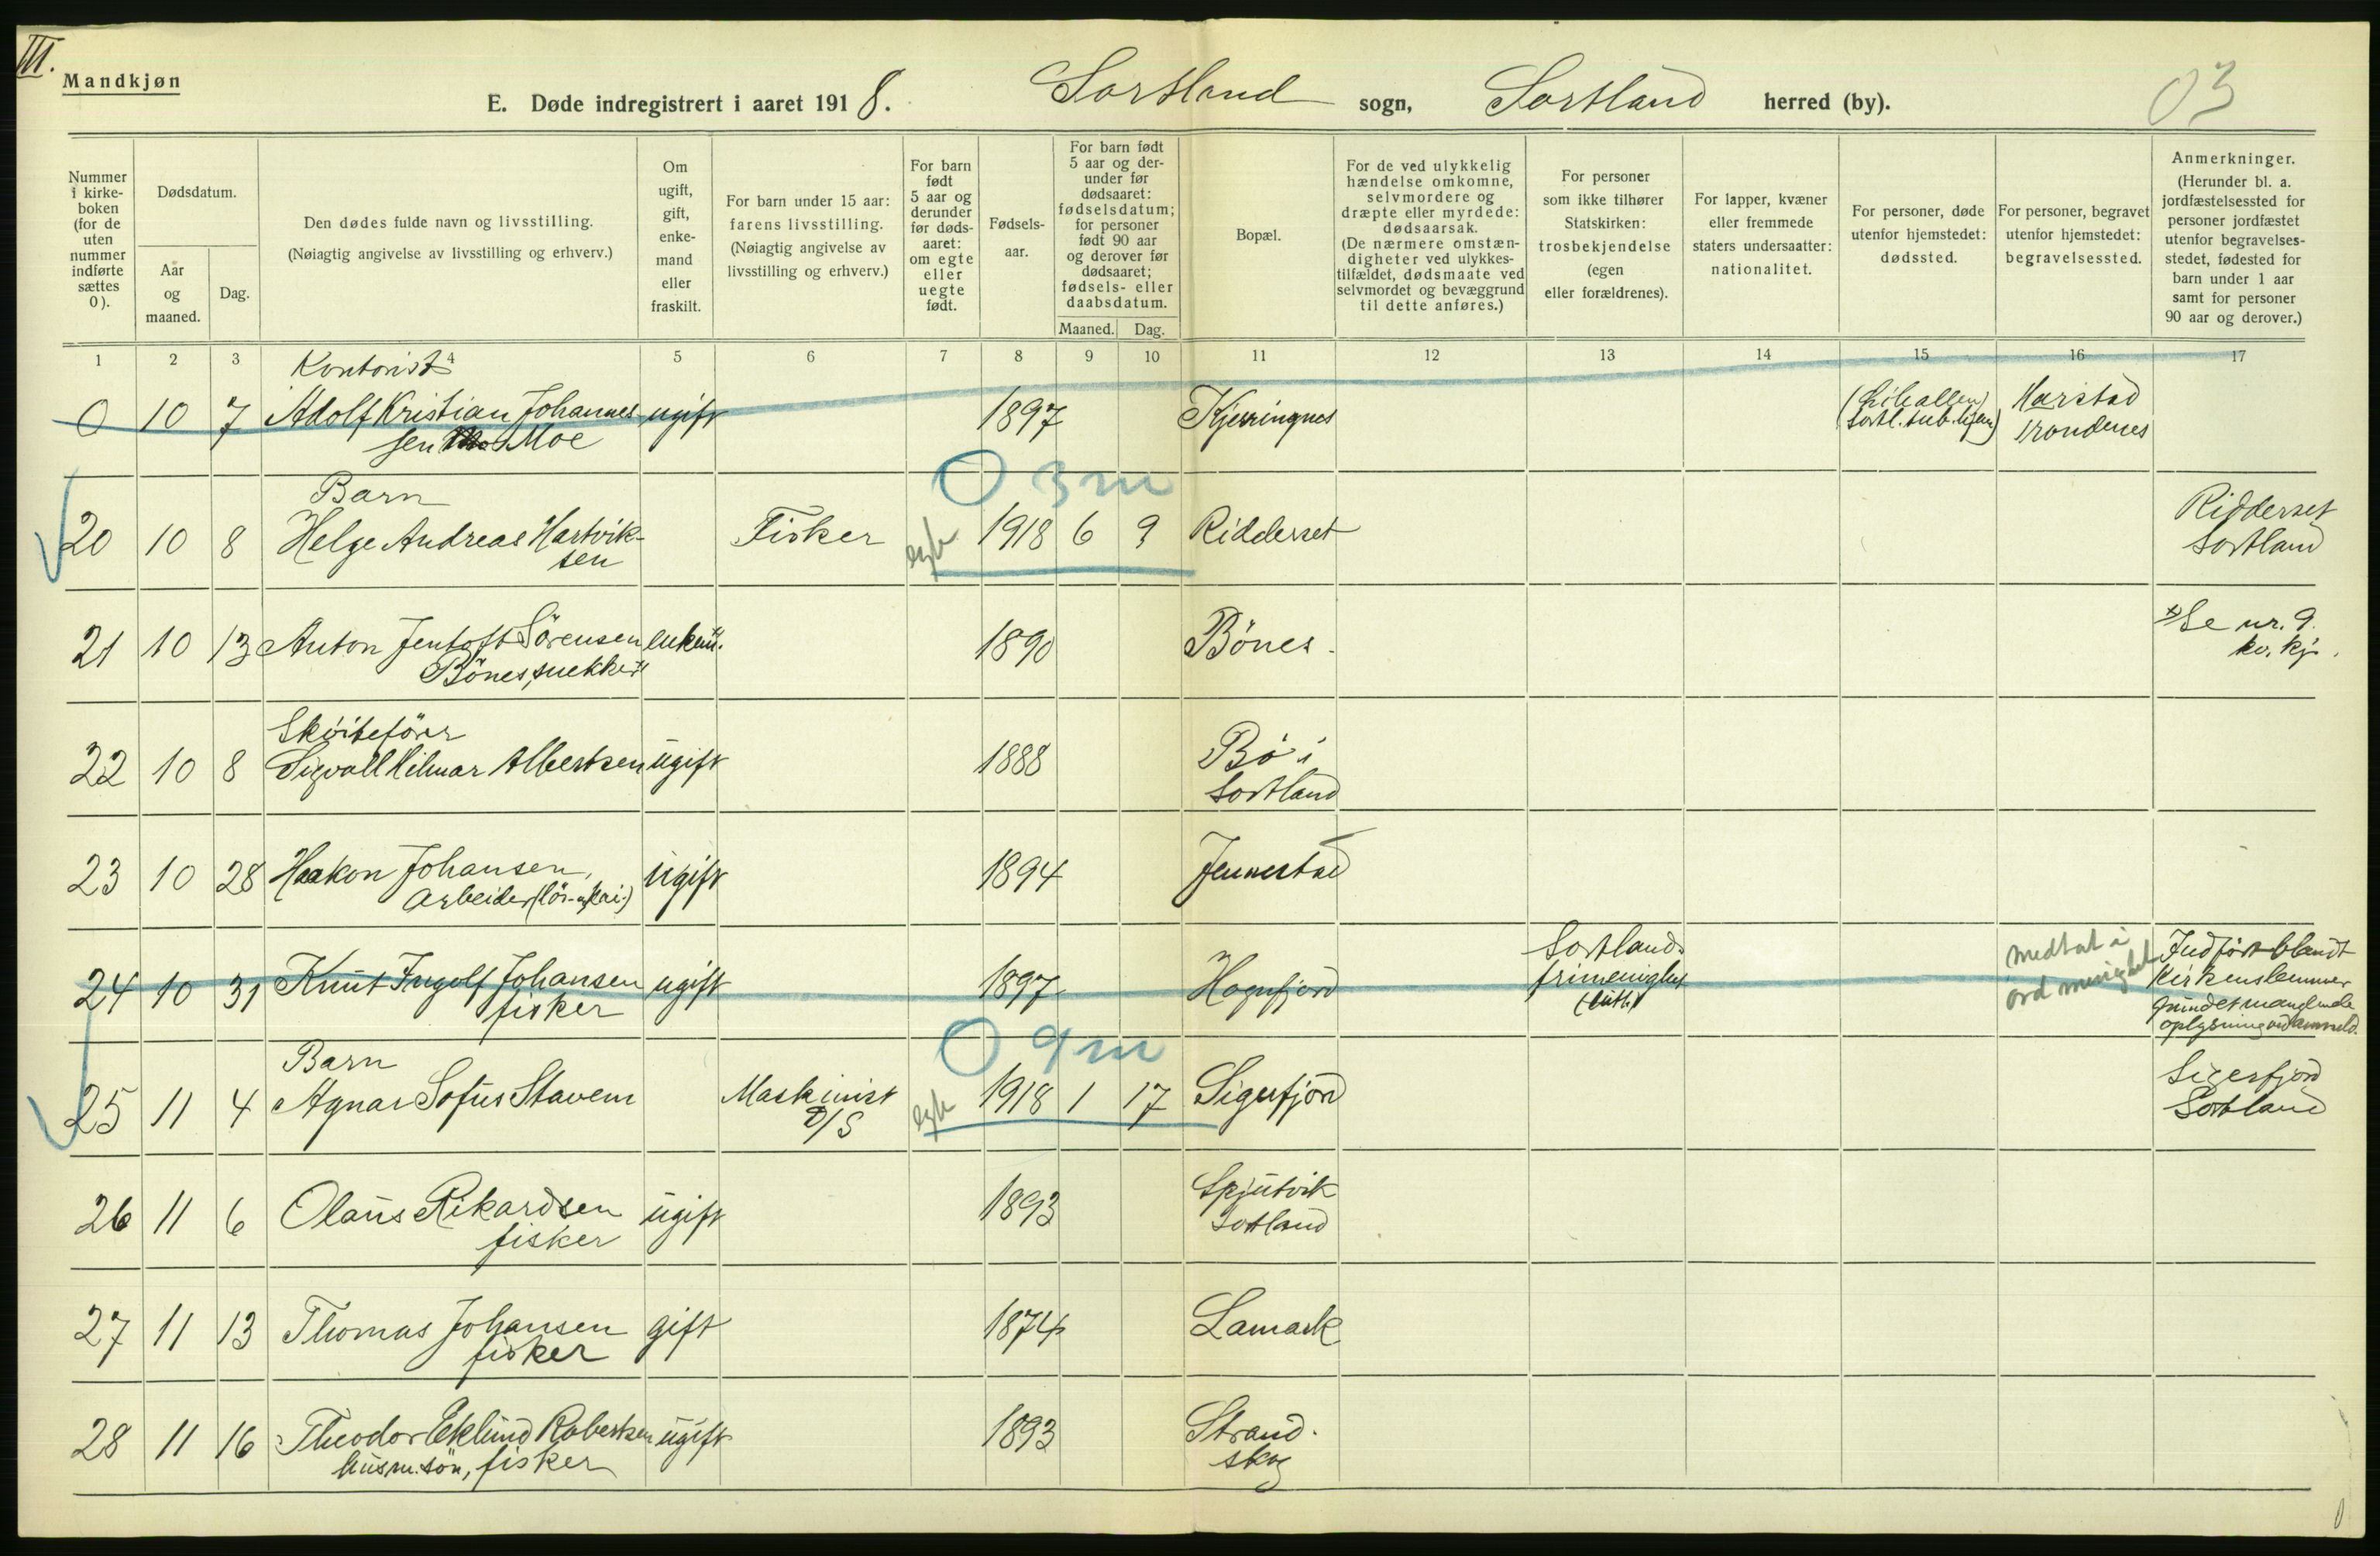 III.
Mandkjøn
E. Døde indregistrert i aaret 1918. Sortland sogn, Sortland herred (by).
03
Nummer i kirke-boken (for de uten nummer indførte sættes 0).
Dødsdatum.
Aar og maaned.
Dag.
Den dødes fulde navn og livsstilling.
(Nøiagtig angivelse av livsstilling og erhverv.)
Om ugift, gift, enke-mand eller fraskilt.
For barn under 15 aar: farens livsstilling.
(Nøiagtig angivelse av livsstilling og erhverv.)
For barn født 5 aar og derunder før døds-aaret: om egte eller uegte født.
Fødsels-aar.
For barn født 5 aar og der-under før dødsaaret: fødselsdatum; for personer født 90 aar og derover før dødsaaret; fødsels- eller daabsdatum.
Maaned. Dag.
Bopæl.
For de ved ulykkelig hændelse omkomne, selvmordere og dræpte eller myrdede: dødsaarsak.
(De nærmere omstæn-digheter ved ulykkes-tilfældet, dødsmaate ved selvmordet og bevæggrund til dette anføres.)
For personer som ikke tilhører Statskirken: trosbekjendelse (egen eller forældrenes).
For lapper, kvæner eller fremmede staters undersaatter: nationalitet.
For personer, døde utenfor hjemstedet: dødssted.
For personer, begravet utenfor hjemstedet: begravelsessted.
Anmerkninger.
(Herunder bl. a. jordfæstelsessted for personer jordfæstet utenfor begravelses-stedet, fødested for barn under 1 aar samt for personer 90 aar og derover.)
1 2 3 4 5 6 7 8 9 10 11 12 13 14 15 16 17
Kontorist
0 10 7 Adolf Kristian Johannes- ugift 1897 Kjerringnes Harstad
sen Moe Trondenes
0 3 m
Barn
20 10 8 Helge Andreas Hartvik- Fisker egte 1918 6 9 Ridderset Ridderset
sen Sortland
21 10 13 Anton Jentoft Sörensen enkem. 1890 Bönes. *) Se nr. 9.
Bönes, snekker kv. kj.
Skøitefører
22 10 8 Sigvall Hilmar Albertsen ugift 1888 Bø i
Sortland
23 10 28 Haakon Johansen, ugift 1894 Jennestad
Arbeider
24 10 31 Knut Ingolf Johansen ugift 1897 Hognfjord Sortlands
fisker frimenighet
(luth.)
medtat i
ord menighet
Indført blandt
Kirkens lemmer
grundet manglende
oplysning ved anmeld.
0 9 m
Barn
25 11 4 Agnar Sofus Stavem Maskinist egte 1918 1 17 Sigerfjord Sigerfjord
D/S Sortland
26 11 6 Olaus Rikardsen ugift 1893 Spjutvik
fisker Sortland
27 11 13 Thomas Johansen gift 1874 Lamark
fisker
28 11 16 Theodor Eklund Robertsen ugift 1893 Strand-
husm. søn, fisker skog